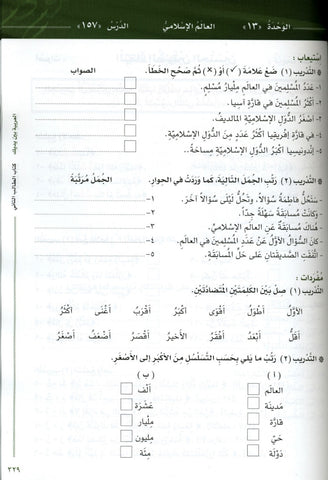 الوَحْدَةُ «١٣» العالَمُ الإسْلاميُّ الدَّرْسُ «١٥٧»
اسْتِيعاب:
التَّدْريب (١) ضَعْ عَلامَةَ (✓) أَوْ (×) ثُمَّ صَحِّحِ الخَطَأَ. الصواب
١- عَدَدُ المُسْلِمينَ في العالَمِ مِلْيارُ مُسْلِمٍ.
٢- أَكْثَرُ المُسْلِمينَ في قارَّةِ آسيا.
٣- أَصْغَرُ الدُّوَلِ الإسْلاميَّةِ المالديف.
٤- في قارَّةِ إفْريقيا أَكْثَرُ عَدَدٍ مِنَ الدُّوَلِ الإسْلاميَّةِ.
٥- إندونيسيا أَكْبَرُ الدُّوَلِ الإسْلاميَّةِ مِساحَةً..
التَّدْريب (٢) رَتِّبِ الجُمَلَ التّالِيَةَ، كَما وَرَدَتْ في الحِوارِ. الجُمَلُ مُرَتَّبَة
- سَتَحُلُّ فاطِمَةُ سُؤالاً، وتَحُلُّ لَيْلَى سُؤالاً آخَرَ. ١-
- وكانَتْ مُسابَقَةً سَهْلَةً جِدّاً. ٢-
- هُناكَ مُسابَقَةٌ عَنِ العالَمِ الإسْلاميِّ. ٣-
- كانَ السُّؤالُ الأَوَّلُ عَنْ عَدَدِ المُسْلِمينَ. ٤-
- اتَّفَقَتِ الصَّديقَتانِ عَلَى حَلِّ المُسابَقَةِ. ٥-
مُفْرَدات:
التَّدْريب (١) صِلْ بَيْنَ الكَلِمَتَيْنِ المُتَضادَّتَيْنِ.
الأَوَّلُ أَطْوَلُ أَقْوَى أَكْبَرُ أَقْرَبُ أَغْنَى أَكْثَرُ
أَقَلُّ أَبْعَدُ أَفْقَرُ الأَخيرُ أَقْصَرُ أَضْعَفُ أَصْغَرُ
التَّدْريب (٢) رَتِّبْ ما يَلي بِحَسَبِ التَّسَلْسُلِ مِنَ الأَكْبَرِ إلى الأَصْغَرِ.
( أ ) ( ب )
العالَم أَلْف
مَدينَة عَشَرَة
قارَّة مِلْيار
حَيّ مِلْيون
دَوْلَة مِئَة
العربية بين يديك كتاب الطالب الثاني
٢٢٩